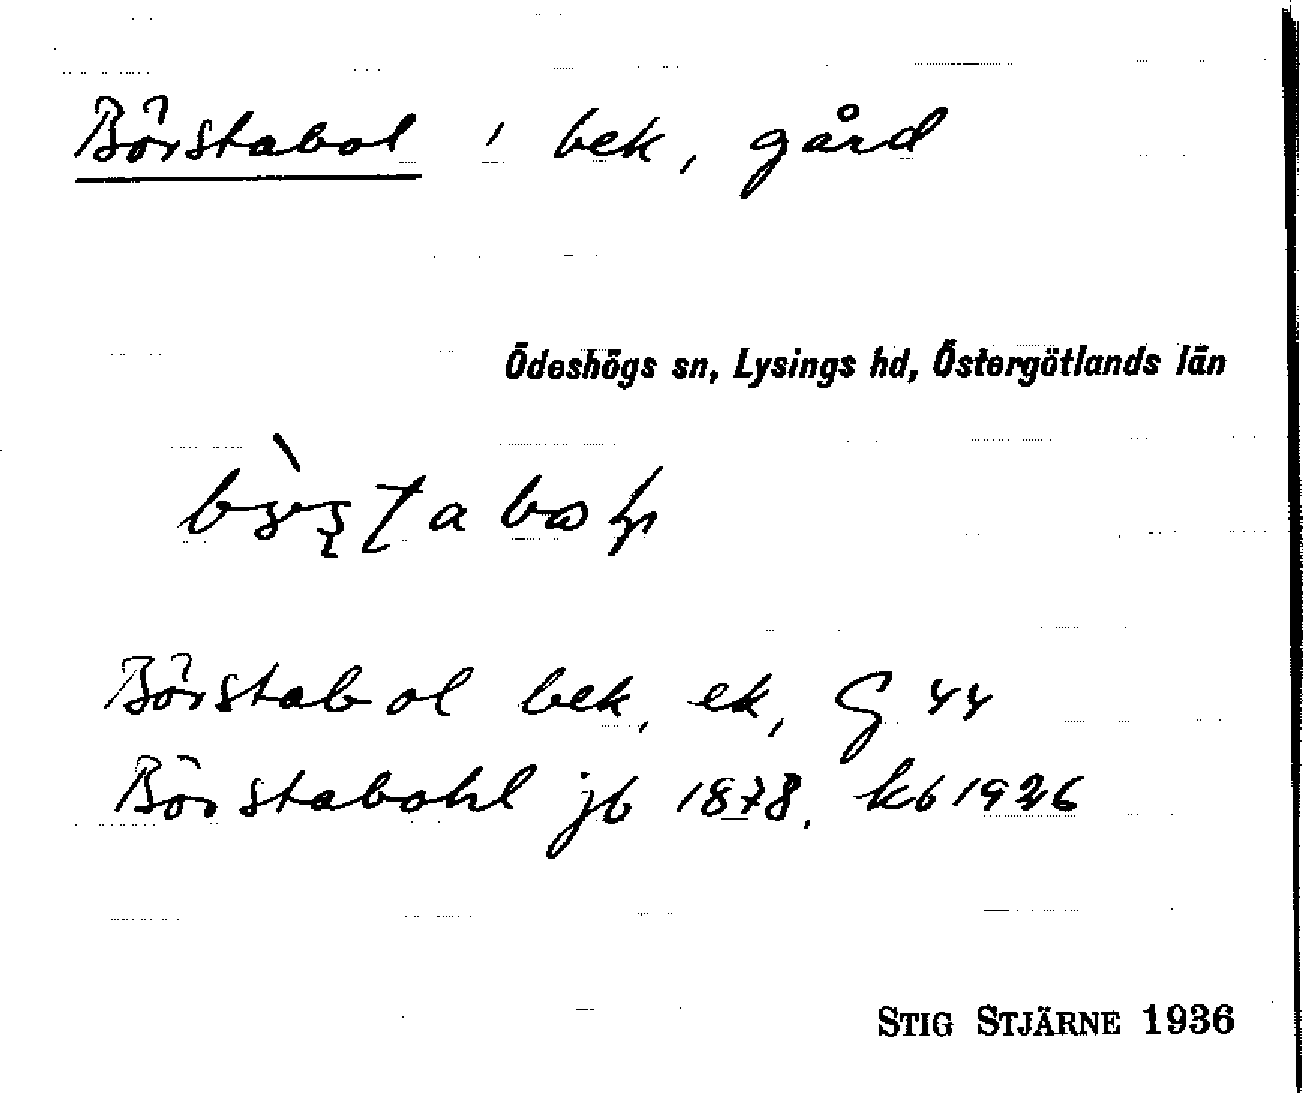 Börstabol ' bek, gård
Ödeshögs sn, Lysings hd, Östergötlands län
Börstabol bek, ek, G 44
Börstabohl jb 1878. kb 1926
STIG STJÄRNE 1936